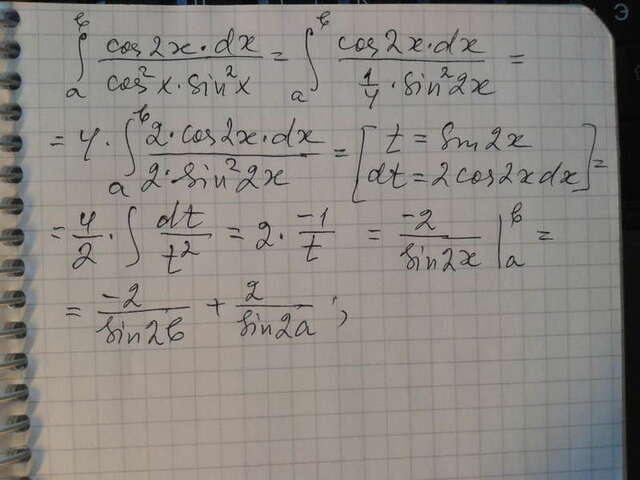 ∫_a^b cos2x·dx / cos²x·sin²x = ∫_a^b cos2x·dx / (1/4·sin²2x) =
= 4·∫_a^b 2·cos2x·dx / 2·sin²2x = [t = sin2x
dt = 2cos2xdx] =
= 4/2·∫ dt/t² = 2·-1/t = -2/sin2x |_a^b =
= -2/sin2b + 2/sin2a ;
Э